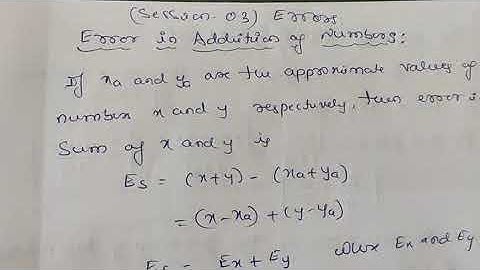 (Session-03) Errors
Error in Addition of Numbers:
If xa and ya are the approximate values of
number x and y respectively, then error i
Sum of x and y is
Es = (x+y) - (xa+ya)
= (x-xa) + (y-ya)
Es = Ex + Ey where Ex and Ey